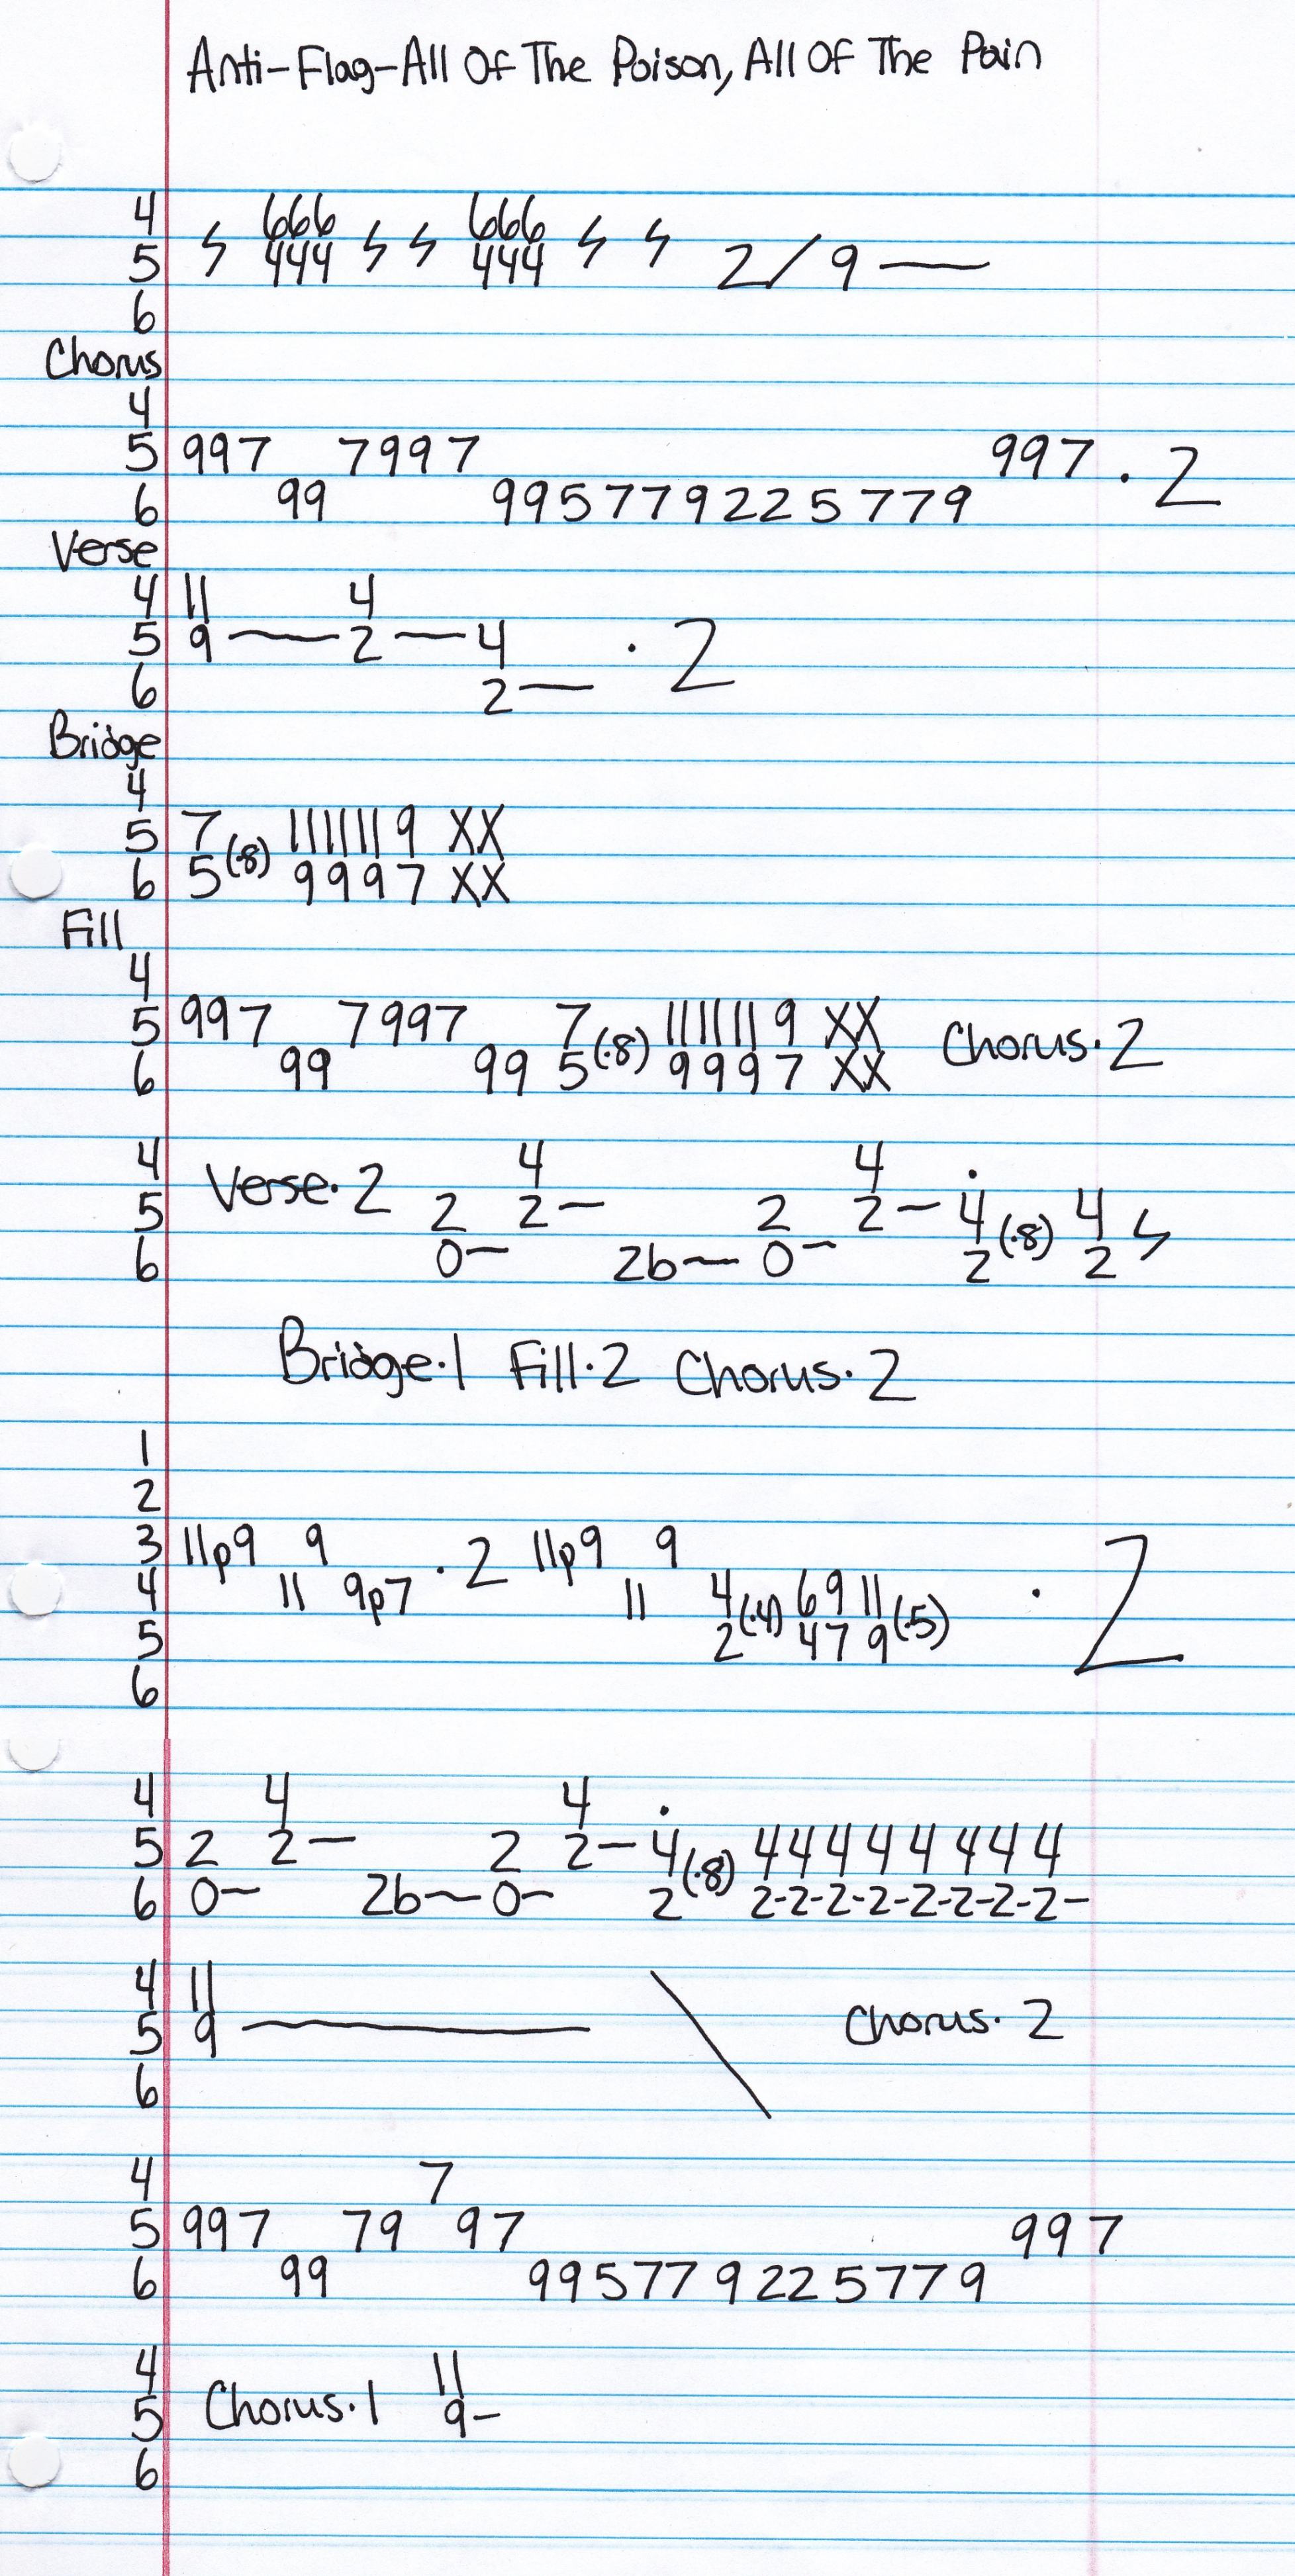 Anti-Flag-All Of The Poison, All Of The Pain
4 666 666
5 444 444 2/9—
6
Chorus
4
5 997 7997 997 · 2
6 99 995779225779
Verse
4 11 4
5 9 — 2 — 4 · 2
6 2 —
Bridge
4
5 7 (·8) 11 11 11 9 XX
6 5 9 9 9 7 XX
Fill
4
5 997 7997 7 (·8) 11 11 11 9 XX Chorus·2
6 99 99 5 9 9 9 7 XX
4 Verse·2 4 4 ·
5 2 2 — 2 2 — 4 (·8) 4
6 0 — 2b — 0 — 2 2
Bridge·1 Fill·2 Chorus·2
1
2
3 11p9 9 · 2 11p9 9
4 11 9p7 11 4 (·4) 6 9 11 (·5) · 2
5 2 4 7 9
6
4 4 4 ·
5 2 2 — 2 2 — 4 (·8) 4 4 4 4 4 4 4 4
6 0 — 2b — 0 — 2 2-2-2-2-2-2-2-2-
4 11
5 9 — \ Chorus·2
6
4 7
5 997 79 97 997
6 99 995779225779
4 11
5 Chorus·1 9 —
6